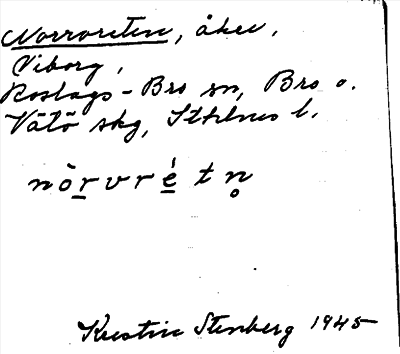 Norrvreten, åker,
Viborg,
Roslags-Bro sn, Bro o.
Vätö skg, Sthlms l.
nòrvré̱tn̥
Kerstin Stenberg 1945